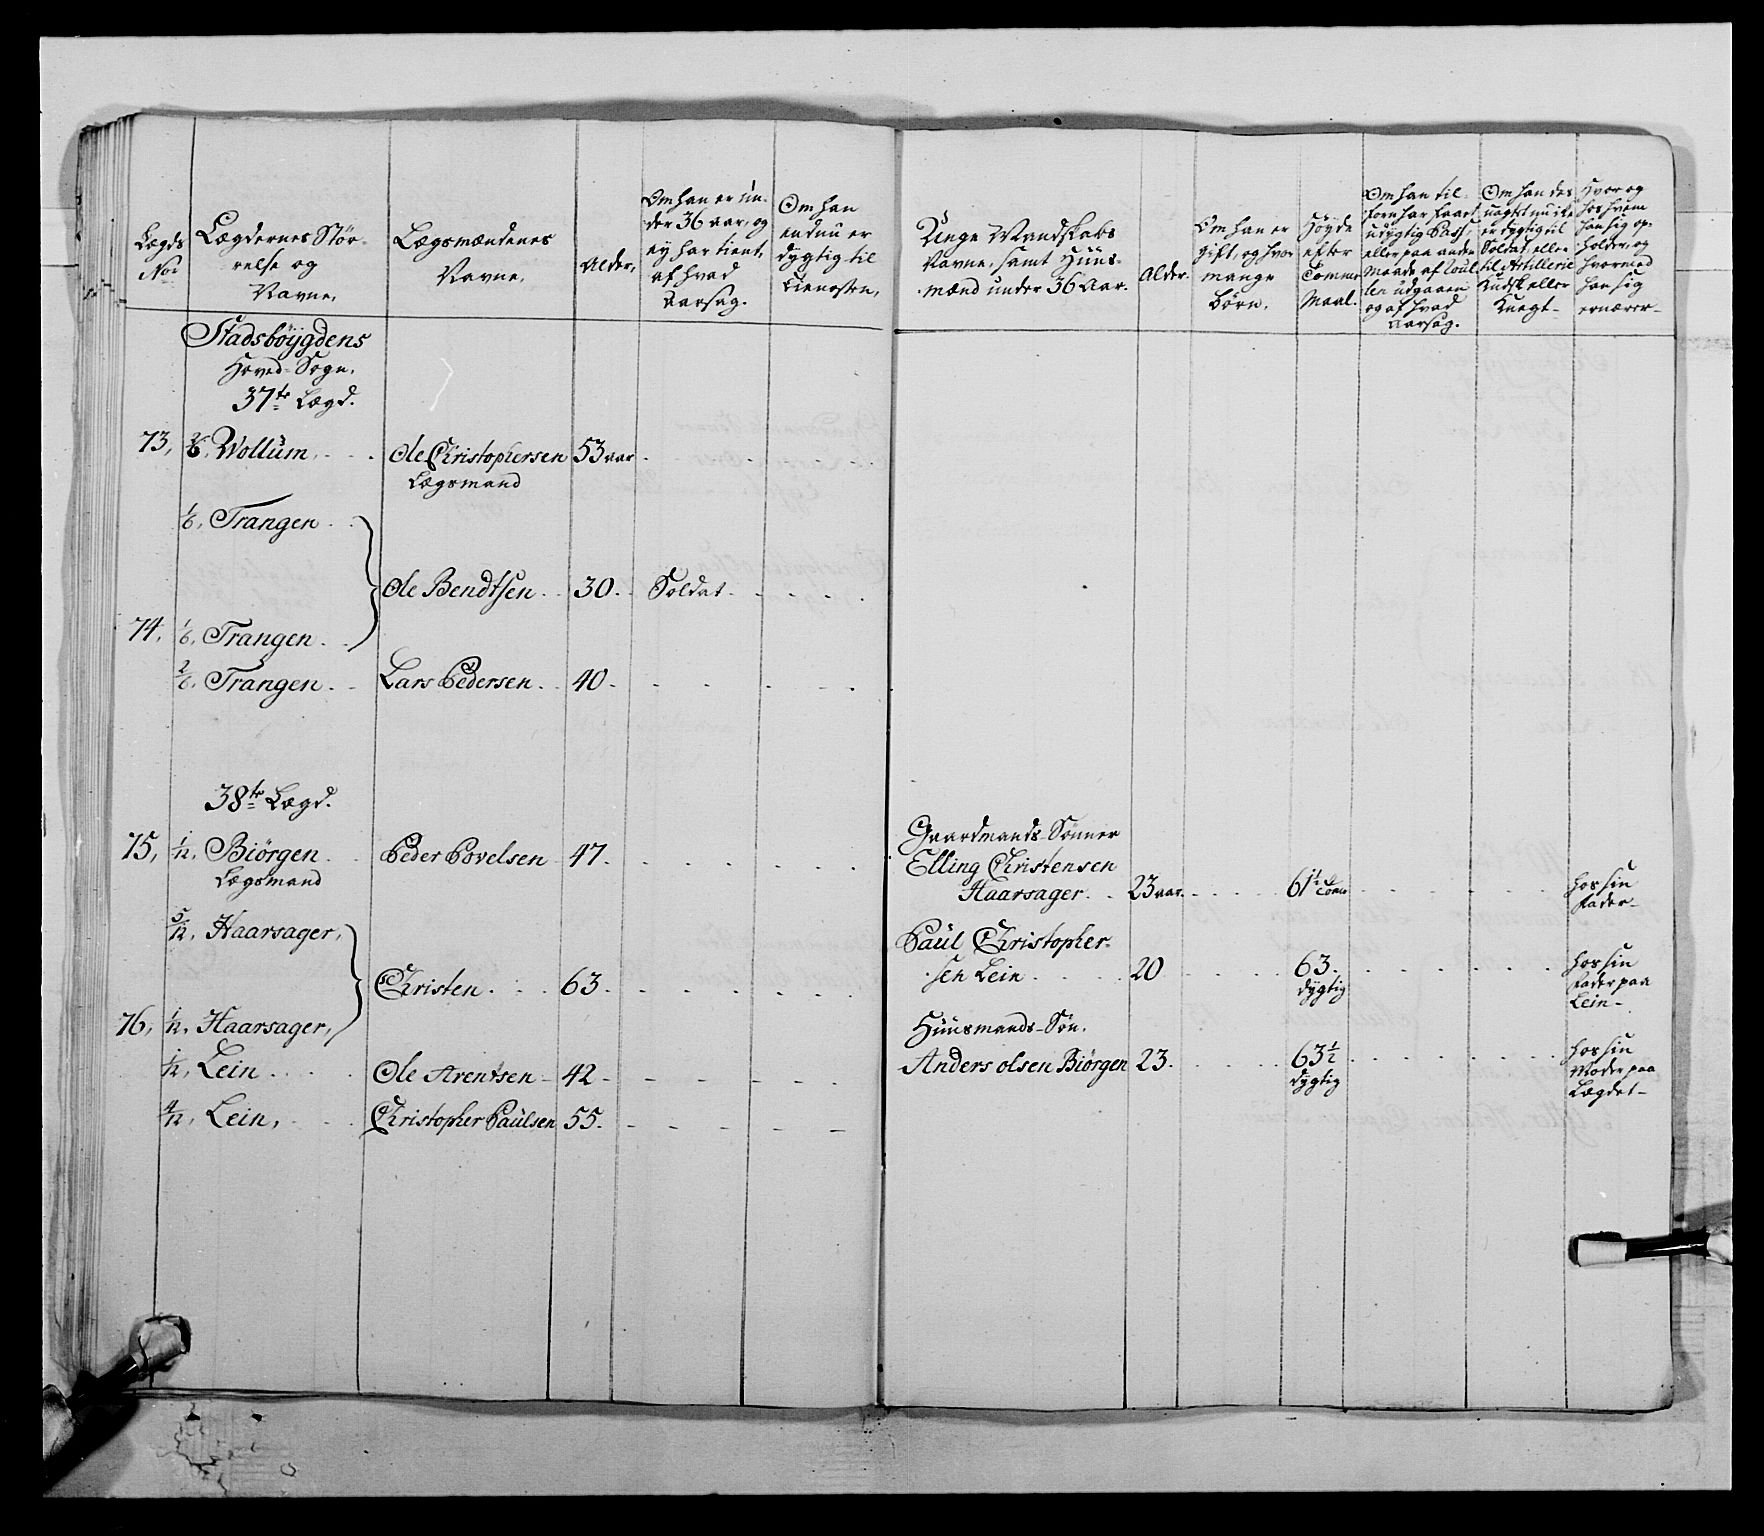 Lægds
No:
Lægdernes Stør-
relse og
Navne,
Lægsmændenes
Navne,
Alder,
Om han er un-
der 36 aar, og
ey har tient,
af hvad
Aarsag.
Om han
endnu er
dygtig til
Tienesten,
Unge Mandskabs
Navne, samt Huus-
mænd under 36 Aar.
Alder.
Om han er
gift, og hvor
mange
børn.
Høyde
efter
Tomme
Maal.
Om han til-
forn har faaet
udygtig Pass,
eller paa anden
Maade af Roul-
len udgaaen
og af hvad
Aarsag.
Om han des
uagtet nu ike
er dygtig til
Soldat, eller
til Artillerie
Kudsk eller
Knegt-
Hvor og
hos hvem
han sig op-
holder, og
hvormed
han sig
ernærer-
Stadsbøygdens
Hoved-Sogn.
37te Lægd.
73, 2/6, Wollum, Ole Christophersen 53 aar
Lægsmand
1/6, Trangen
Ole Bendtsen 30. Soldat
74, 1/6, Trangen
2/6, Trangen Lars Pedersen 40.
38te Lægd.
75, 1/12, Biørgen Peder Povelsen 47.
Lægsmand
5/12, Haarsager,
Christen 63.
76, 1/12, Haarsager,
1/12, Lein Ole Arentsen 42
4/12, Lein, Christopher Paulsen 55.
Gaardmands-Sønner
Elling Christensen
Haarsager 23 aar. 61 1/2 Tom hos sin
Fader-
Paul Christopher-
sen Lein 20 63. hos sin
dygtig Fader paa
Lein-
Huusmands-Søn.
Anders olsen Biørgen 23. 63 1/2 hos sin
dygtig Moder paa
Lægdet-